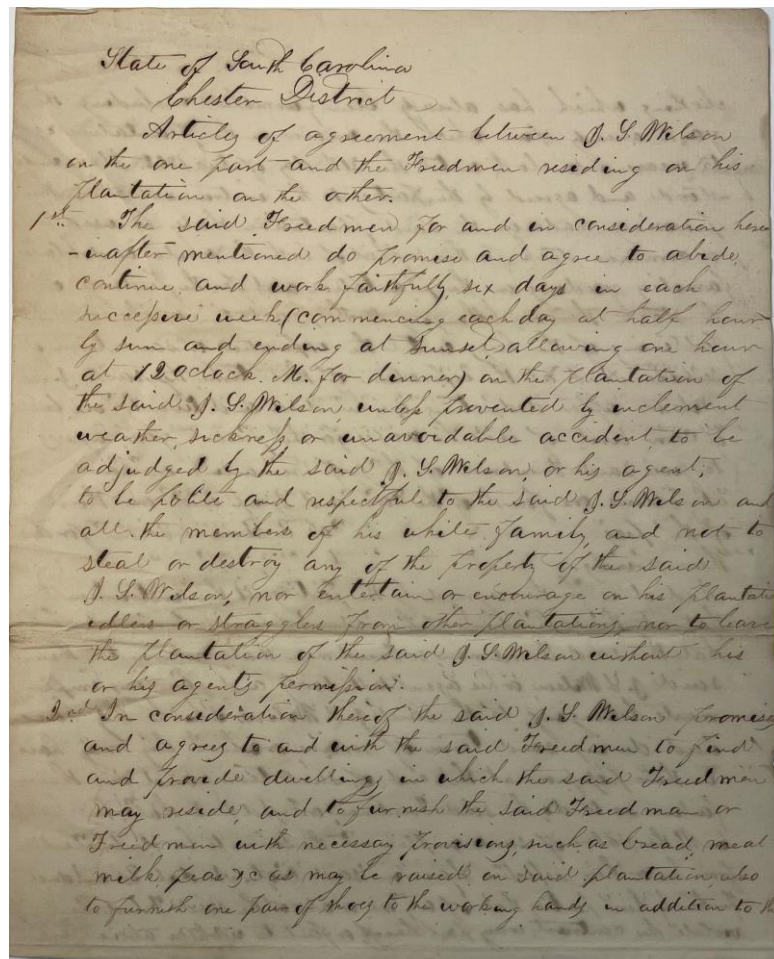 State of South Carolina
Chester District
Articles of agreement between J. S. Wilson
on the one part and the Freedmen residing on his
plantation on the other.
1st The said Freedmen for and in consideration here
-inafter mentioned do promise and agree to abide,
continue, and work faithfully, six days in each
succesive week (commencing each day at half hour
by sun and ending at Sunset, allowing one hour
at 12 Oclock. M. for dinner) on the plantation of
the said J. S. Wilson, unless prevented by inclement
weather, sickness or unavoidable accident, to be
adjudged by the said J. S. Wilson, or his agent,
to be polite and respectful to the said J. S. Wilson and
all the members of his white family, and not to
steal or destroy any of the property of the said
J. S. Wilson, nor entertain or encourage on his plantati
idlers or stragglers from other plantations, nor to leave
the plantation of the said J. S. Wilson without his
or his agents permission.
2nd In consideration thereof the said J. S. Wilson promises
and agrees to and with the said Freedmen to find
and provide dwellings in which the said Freedmen
may reside, and to furnish the said Freedman or
Freedmen with necessay provisions, such as bread, meat
milk, peas &c as may be raised on said plantation, also
to furnish one pair of shoes to the working hands in addition to the